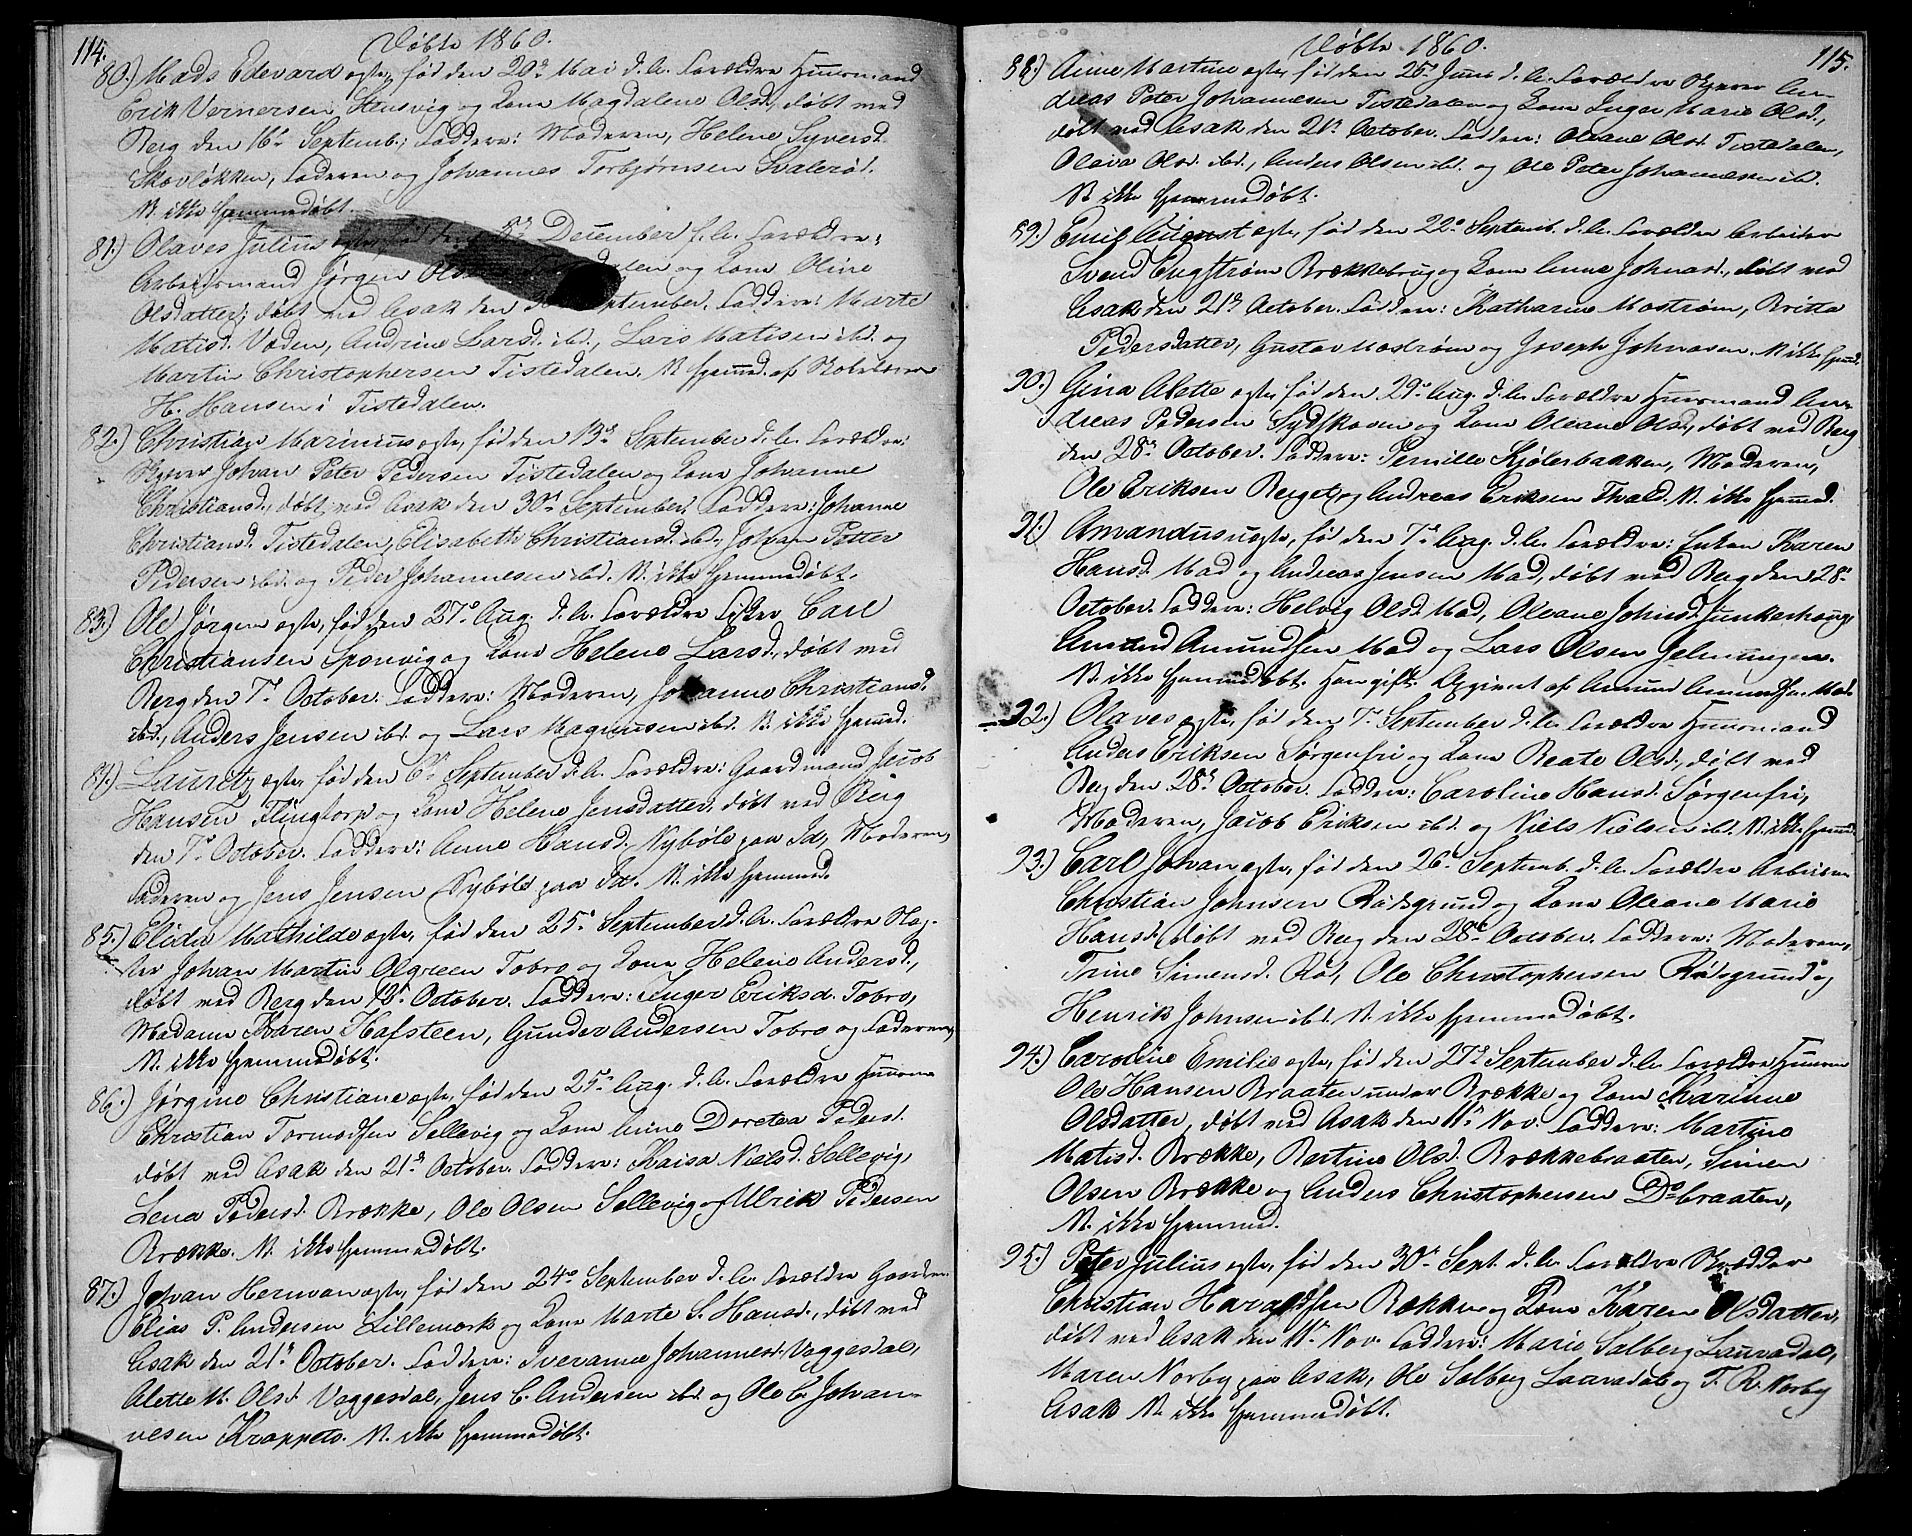 114.
Døbte 1860.
80.) Mads Edevard ægte, fød den 20de Mai d. A. Forældre Huusmand
Erik Vernersen Stusvig og Kone Magdalene Olsd., døbt ved
Berg den 16de Septemb.; Faddere: Moderen, Helene Syversd.
Skovløkken, Faderen og Johannes Torbjørnsen Svalerød.
N. ikke hjemmedøbt.
81.) Olaves Julius ægte, fød den 5te December f. A. Forældre:
Arbeidsmand Jørgen Tistedalen og Kone Oline
Olsdatter; døbt ved Asak den September. Faddere: Marte
Matisd. Veden, Andrine Larsd. ibd., Lars Matisen ibd. og
Martin Christophersen Tistedalen. N. hjemd. af Skolelærer
H. Hansen i Tistedalen.
82.) Christian Marinius ægte, fød den 13de September d. A. Forældre:
Skjærer Johan Peter Pedersen Tistedalen og Kone Johanne
Christiansd., døbt ved Asak den 30te September. Faddere: Johanne
Christiansd. Tistedalen, Elisabeth Christiansd. ibd., Johan Petter
Pedersen ibd. og Peder Johannesen ibd. N. ikke hjemmedøbt.
83.) Ole Jørgen ægte, fød den 27de Aug. d. A. Forældre Fisker Carl
Christiansen Sponvig og Kone Helene Larsd., døbt ved
Berg den 7de October. Faddere: Moderen, Johanne Christiansd.
ibd., Anders Jensen ibd. og Lars Magnusen ibd. N. ikke hjemmd.
84.) Lauritz ægte, fød den 6te September d. A. Forældre: Gaardmand Jacob
Hansen Flingtorp og Kone Helene Jensdatter, døbt ved Berg
den 7de October. Faddere: Anne Hansd. Nybøle paa Id, Moderen,
Faderen og Jens Jensen Nybøle paa Id. N. ikke hjemmed.
85.) Elida Mathilde ægte, fød den 25de September d. A. Forældre
Johan Martin Olgreen Tobro og Kone Helene Andersd.,
døbt ved Berg den October. Faddere: Inger Eriksd. Tobro,
Madame Karen Hafsteen, Gunder Andersen Tobro og Faderen,
N. ikke hjemmedøbt.
86.) Jørgine Christiane ægte, fød den 25de Aug. d. A. Forældre Huusm
Christian Tormodsen Sellevig og Kone Anne Dortea Pedersd.
døbt ved Asak den 21de October. Faddere: Kaisa Nielsd. Sellevig,
Lena Pedersd. Brække, Ole Olsen Sellevig og Ulrik Pedersen
Brække. N. ikke hjemmedøbt.
87.) Johan Herman ægte, fød den 24de September d. A. Forældre Gaardm.
Elias P. Andersen Lillemork og Kone Marte S. Hansd., døbt ved
Asak den 21de October. Faddere: Iveranne Johannesd. Vaggesdal,
Alette M. Olsd. Vaggesdal, Jens C. Andersen ibd. og Ole C. Johan-
nesen Krappeto. N. ikke hjemmedøbt.
115.
Døbte 1860.
88.) Anne Martine ægte, fød den 25de Juni d. A. Forældre Skjærer An-
dreas Peter Johannesen Tistedalen og Kone Inger Marie Olsd.,
døbt ved Asak den 21de October. Faddere: Oleane Olsd. Tistedalen,
Olava Olsd. ibd., Anders Olsen ibd. og Ole Peter Johannesen ibd.
N. ikke hjemmedøbt.
89.) Emil August ægte, fød den 22de Septemb. d. A. Forældre Arbeider
Svend Engstrøm Brækkebrug og Kone Anne Johnasd., døbt ved
Asak den 21de October. Faddere: Katharine Mostrøm, Britta
Pedersdatter, Gustav Mostrøm og Joseph Johnasen. N. ikke hjmd.
90.) Gina Alette ægte, fød den 29de Aug. d. A. Forældre Huusmand An-
dreas Pedersen Sydskoven og Kone Oleane Olsd., døbt ved Berg
den 28de October. Faddere: Pernille Kjølerbakken, Moderen,
Ole Eriksen Berget og Andreas Eriksen Thald. N. ikke hjemmd.
91.) Amandus uægte, fød den 7de Aug. d. A. Forældre: Enken Karen
Hansd. Mad og Andreas Jensen Mad, døbt ved Berg den 28de
October. Faddere: Helvig Olsd. Mad, Oleane Johnsd. Junkerhaug,
Amund Amundsen Mad og Lars Olsen
N. ikke hjemmedøbt. Han gift. Opgivet af Amund Amundsen Mad
92.) Olaves ægte, fød den 7de September d. A. Forældre Huusmand
Anders Eriksen Sørgenfri og Kone Beate Olsd., døbt ved
Berg den 28de October. Faddere: Caroline Hansd. Sørgenfri,
Moderen, Jacob Eriksen ibd. og Niels Nielsen ibd. N. ikke hjemmd.
93.) Carl Johan ægte, fød den 26de Septemb. d. A. Forældre Arbeider
Christian Johnsen Rødsgrund og Kone Oleane Marie
Hansd., døbt ved Berg den 28de October. Faddere: Moderen,
Trine Simensd. Rød, Ole Christophersen Rødsgrund og
Henrik Johnsen ibd. N. ikke hjemmedøbt.
94.) Caroline Emilie ægte, fød den 27de September d. A. Forældre Huusm
Ole Hansen Braaten under Brække og Kone Karinne
Olsdatter, døbt ved Asak den 11te Nov. Faddere: Martine
Matisd. Brække, Bertine Olsd. Brækkebraaten, Simen
Olsen Brække og Anders Christophersen Do braaten,
N. ikke hjemmed.
95.) Peter Julius ægte, fød den 30te Sept. d. A. Forældre Skrædder
Christian Haraldsen Brække og Kone Karen Olsdatter,
døbt ved Asak den 11te Nov. Faddere: Marie Solberg Lauvadal,
Maren Norby paa Asak, Ole Solberg Laavadal og T. R. Norby
Asak N. ikke hjemmedøbt.